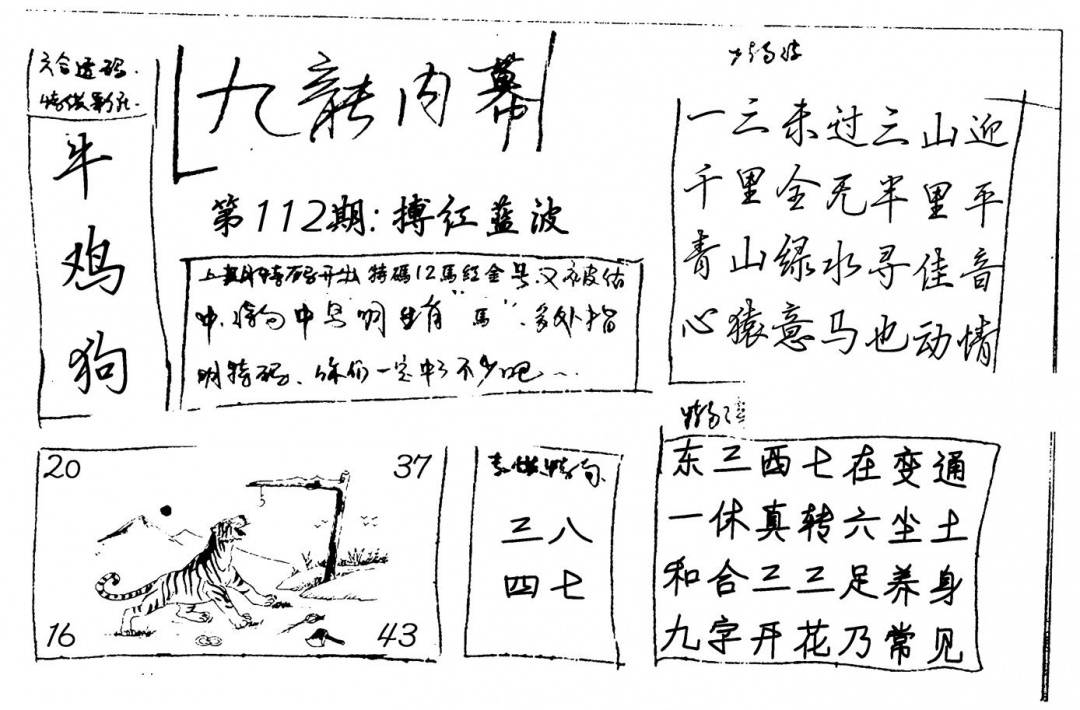 六合透码
牛
鸡
狗
九龍内幕
第112期:搏红蓝波
上期特码开出特碼12馬红金号,又被估
中,中号明生肖"馬",多处指
明特码,你们一定中了不少吧…
一三未过三山迎
千里全无半里平
青山绿水寻佳音
心猿意马也动情
20
37
16
43
三八
四七
东三西七在变通
一休真转六尘土
和合三三足养身
九字开花乃常见